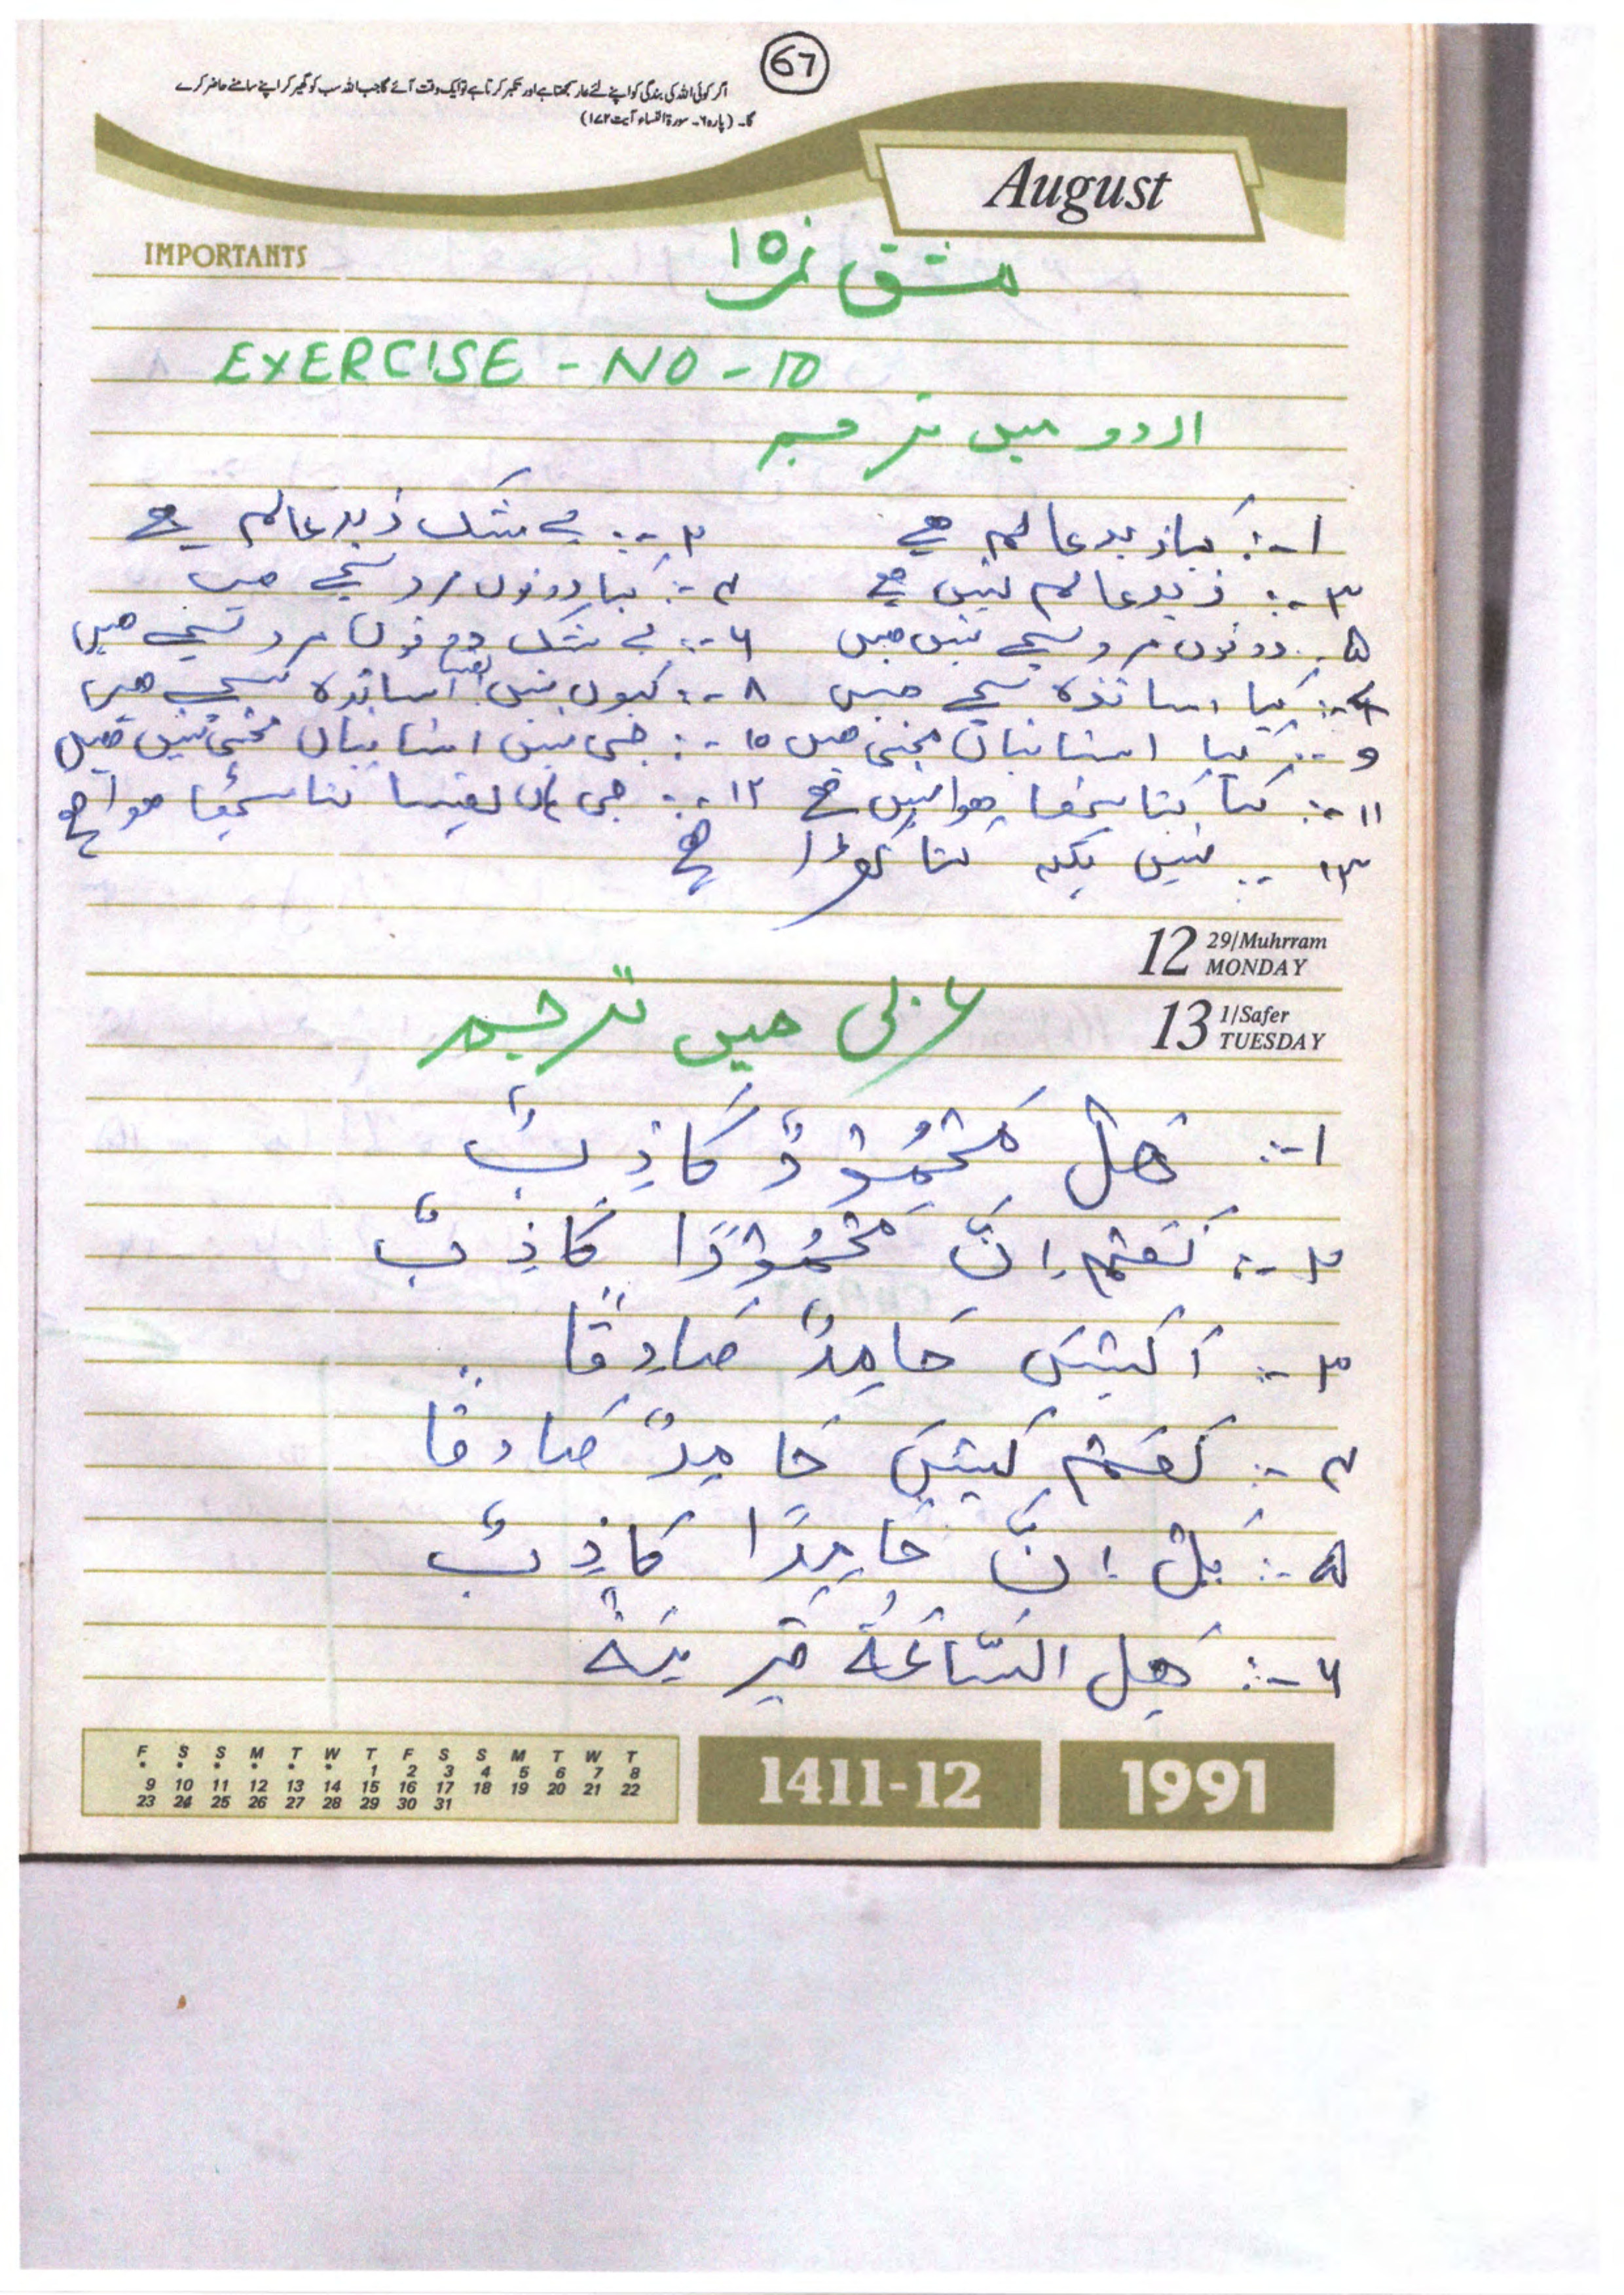 67
اگر کوئی اللہ کی بندگی کو اپنے لئے عار سمجھتا ہے اور تکبر کرتا ہے تو ایک وقت آئے گا جب اللہ سب کو گھیر کر اپنے سامنے حاضر کرے
گا۔ (پارہ ۶۔ سورۃ النساء آیت ۱۷۲)
August
IMPORTANTS
مشق نمبر ۱۰
EXERCISE - NO - 10
اردو میں ترجمہ
۱-: کیا زید عالم ہے ۲-: بے شک زید عالم ہے
۳-: زید عالم نہیں ہے ۴-: کیا دونوں مرد سچے ہیں
۵-: دونوں مرد سچے نہیں ہیں ۶-: بے شک دونوں مرد سچے ہیں
۷-: کیا اساتذہ سچے ہیں ۸-: کیوں نہیں یقینا اساتذہ سچے ہیں
۹-: کیا استانیاں محنتی ہیں ۱۰-: جی نہیں استانیاں محنتی نہیں ہیں
۱۱-: کیا کتا بیٹھا ہوا نہیں ہے ۱۲-: جی ہاں یقینا کتا بیٹھا ہوا ہے
۱۳-: نہیں بلکہ کتا کھڑا ہے
12 29/Muhrram
MONDAY
13 1/Safer
TUESDAY
عربی میں ترجمہ
۱-: هَلْ مَحْمُوْدٌ كَاذِبٌ
۲-: نَعَمْ اِنَّ مَحْمُوْدًا كَاذِبٌ
۳-: اَلَيْسَ حَامِدٌ صَادِقًا
۴-: نَعَمْ لَيْسَ حَامِدٌ صَادِقًا
۵-: بَلْ اِنَّ حَامِدًا كَاذِبٌ
۶-: هَلِ السَّاعَةُ قَرِيْبَةٌ
F S S M T W T F S S M T W T
• • • • • • 1 2 3 4 5 6 7 8
9 10 11 12 13 14 15 16 17 18 19 20 21 22
23 24 25 26 27 28 29 30 31
1411-12
1991